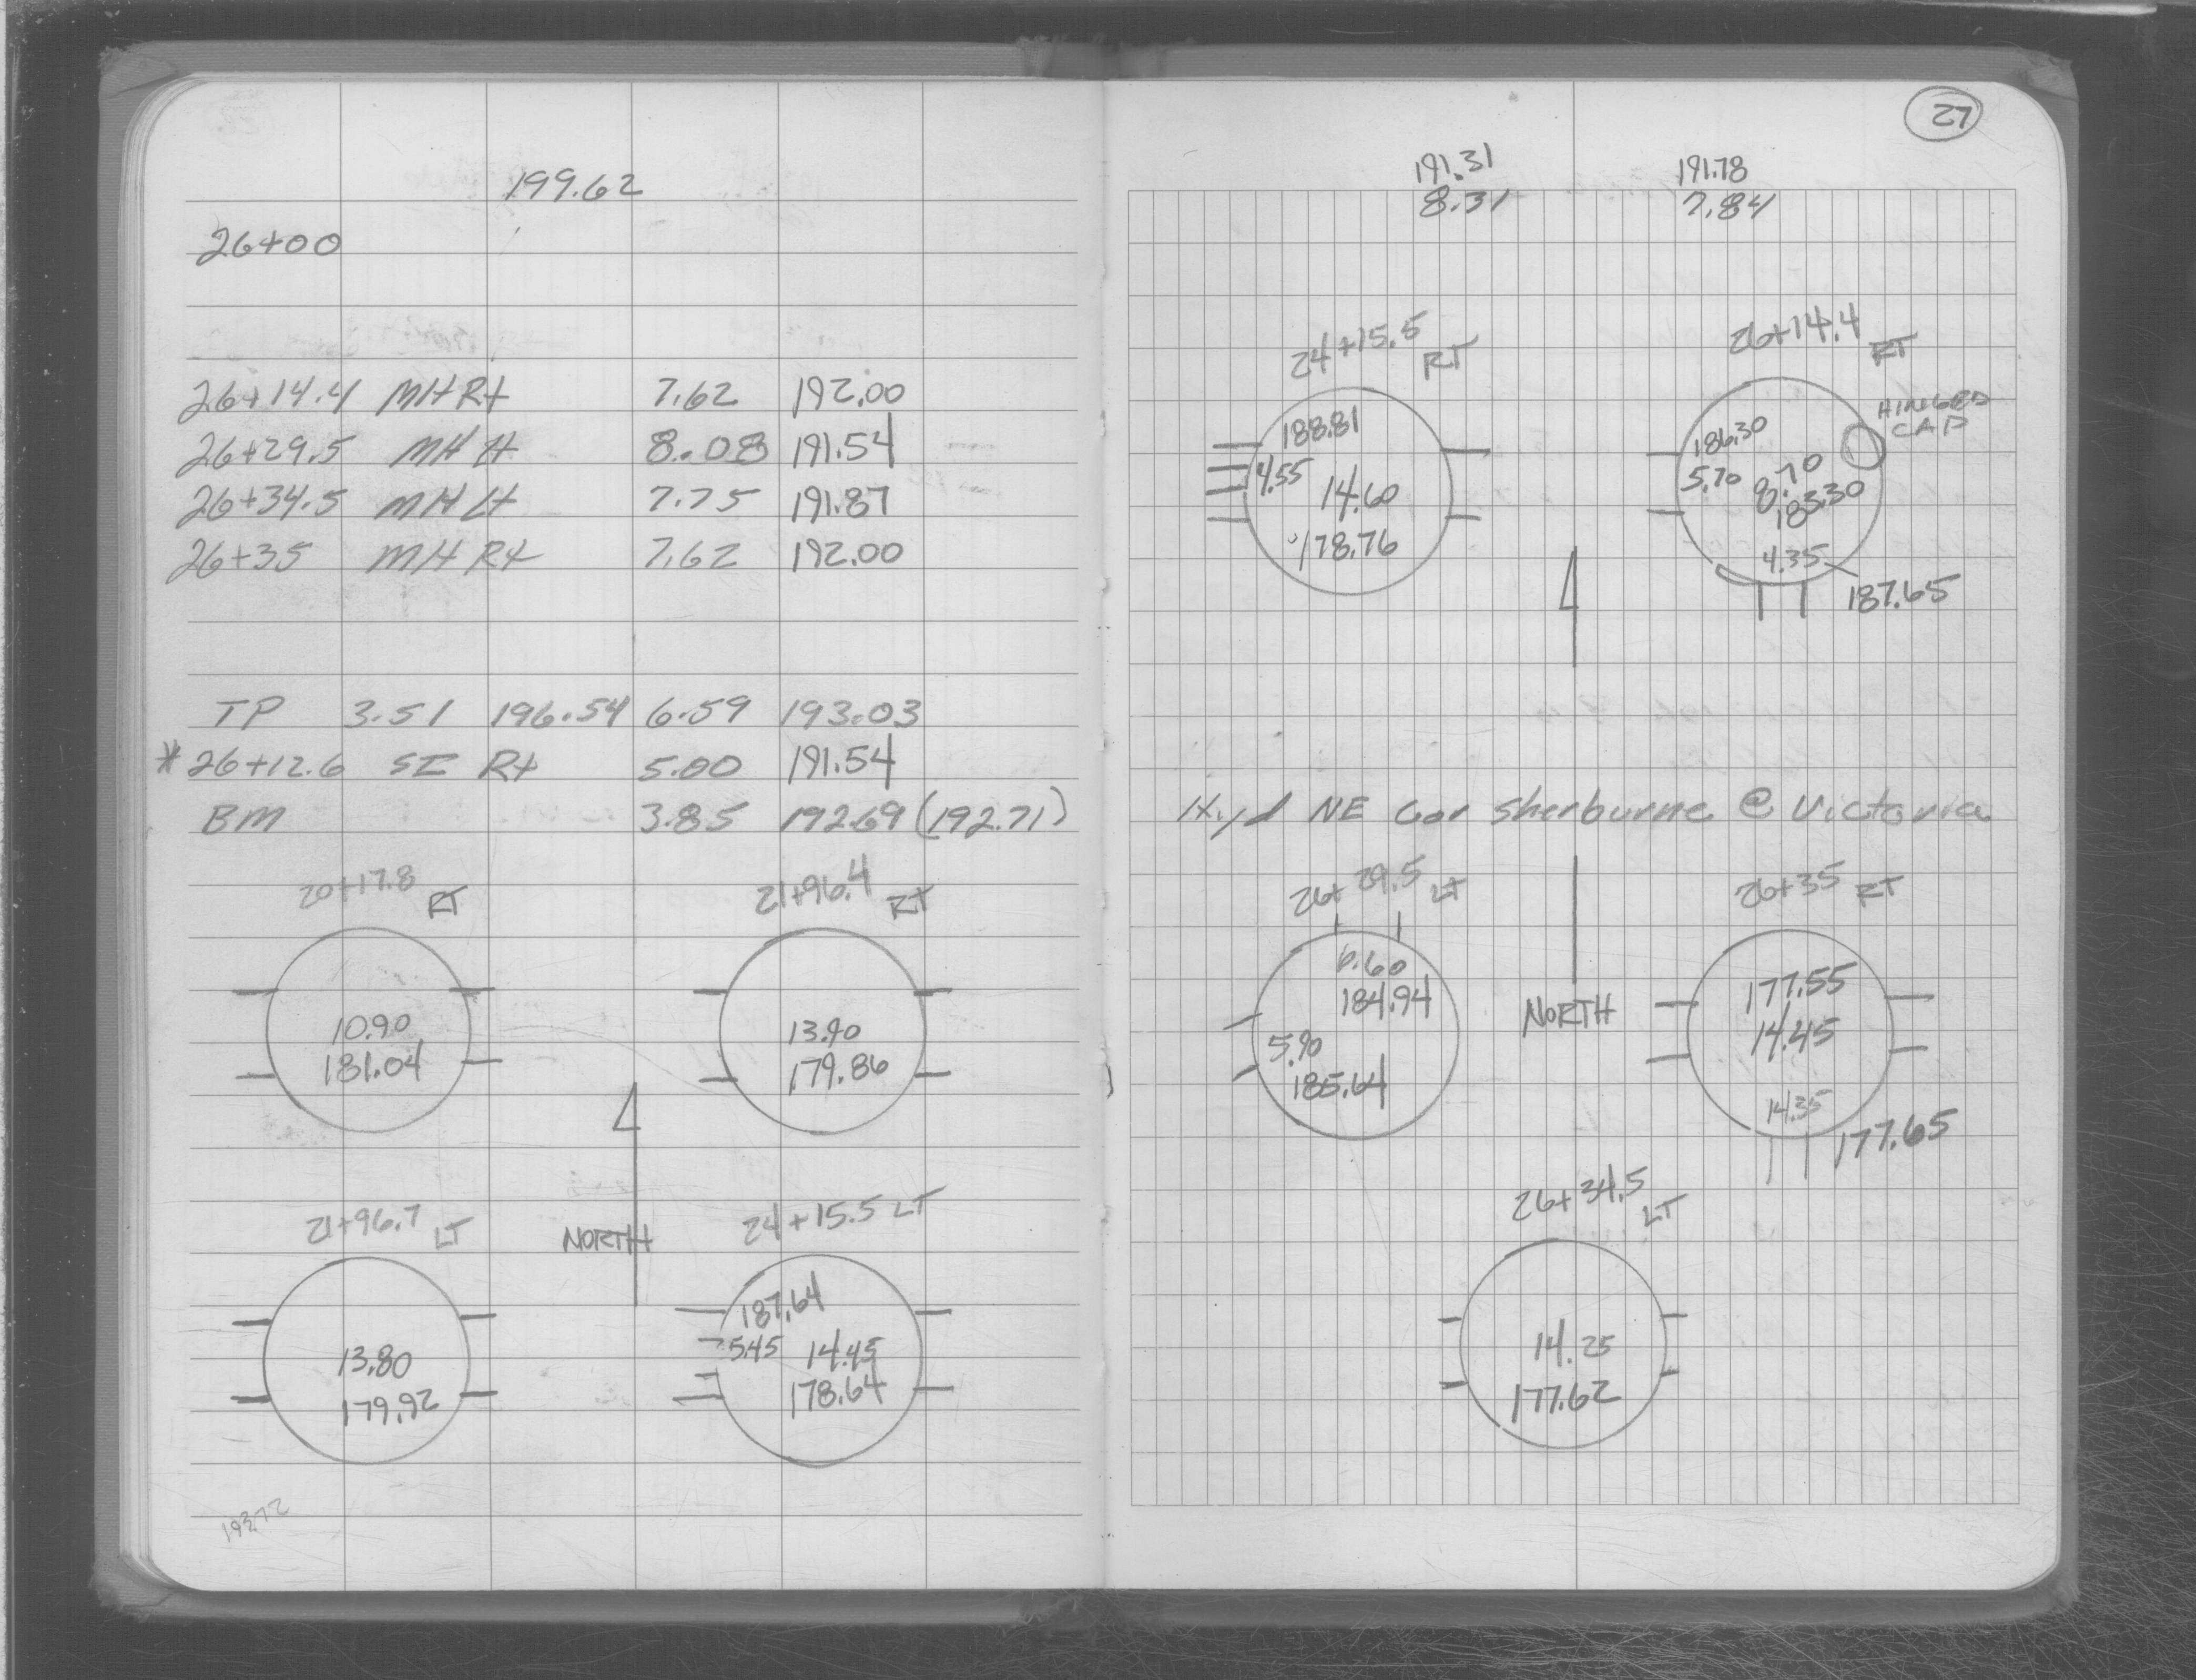 199.62
26+00
26+14.4 MH Rt 7.62 192.00
26+29.5 MH Lt 8.08 191.54
26+34.5 MH Lt 7.75 191.87
26+35 MH Rt 7.62 192.00
TP 3.51 196.54 6.59 193.03
* 26+12.6 SI Rt 5.00 191.54
BM 3.85 192.69 (192.71)
20+17.8 RT
10.90
181.04
21+96.4 RT
13.90
179.86
21+96.7 LT
13.80
179.92
NORTH
24+15.5 LT
187.64
5.45 14.45
178.64
193.72
27
191.31 191.78
8.31 7.84
24+15.5 RT
188.81
4.55 14.60
178.76
26+14.4 RT
HINGED
CAP
186.30
5.70 8.70
183.30
4.35
187.65
Hyd NE Cor Sherburne @ Victoria
26+29.5 LT
6.60
184.94
5.90
185.64
NORTH
26+35 RT
177.55
14.45
14.35
177.65
26+34.5 LT
14.25
177.62